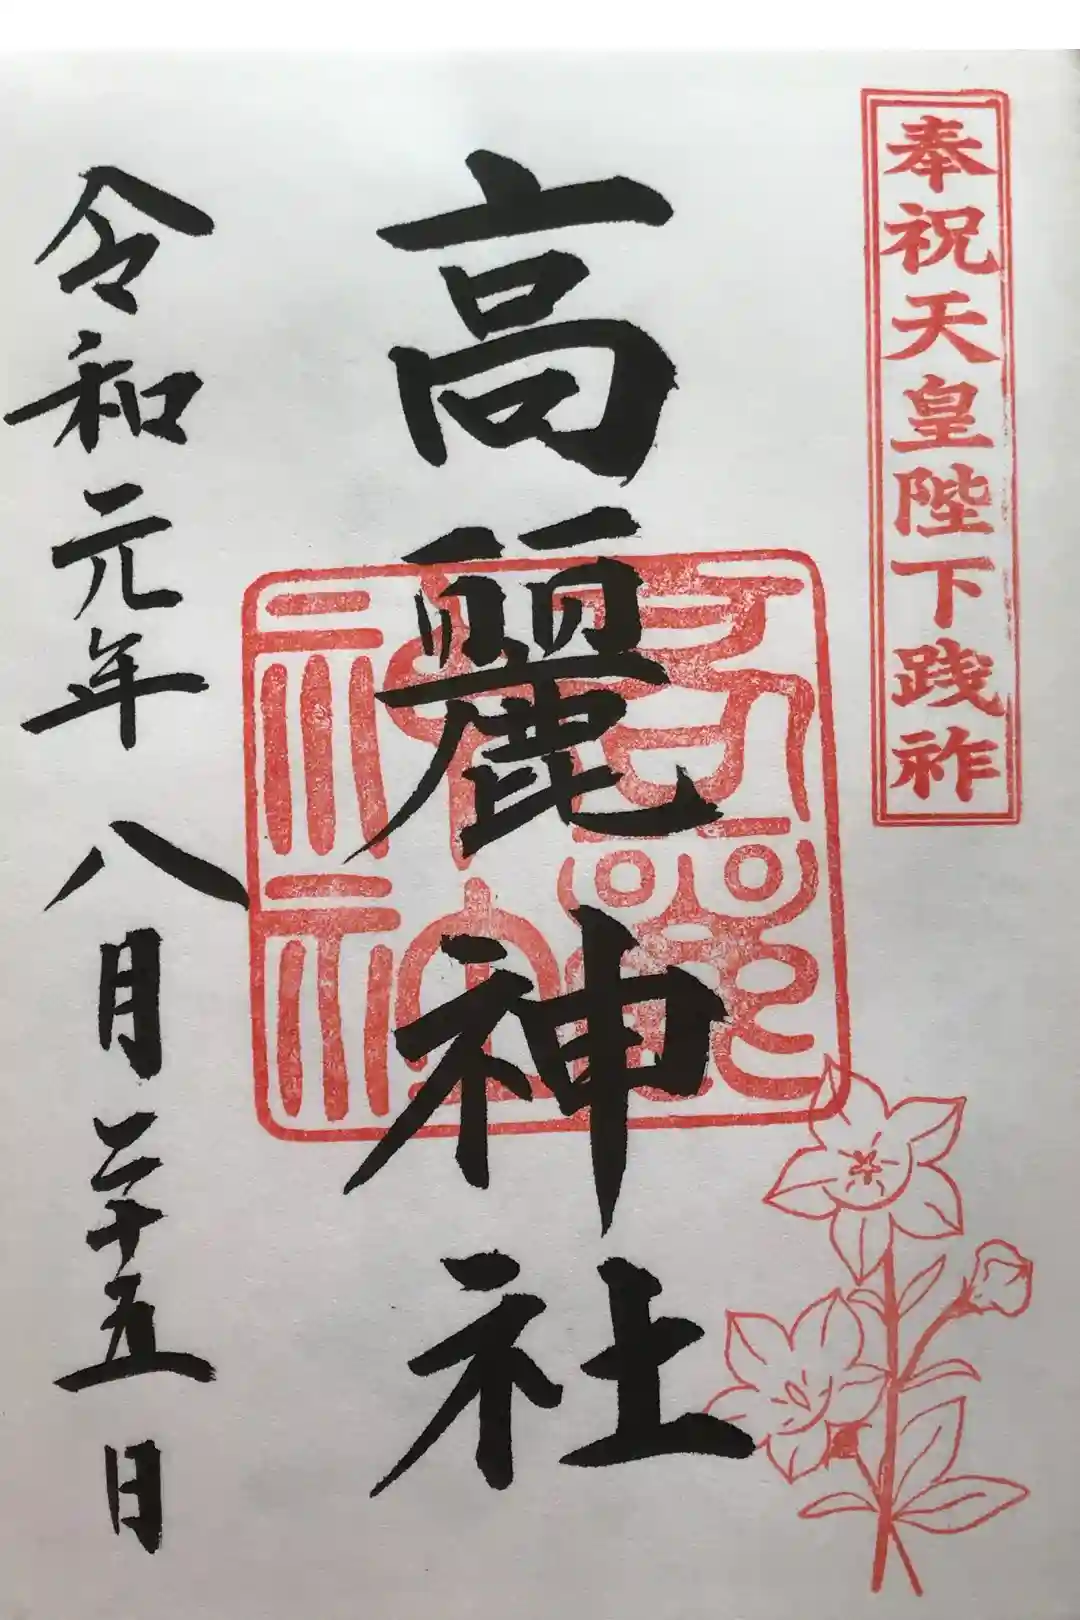 奉祝天皇陛下践祚
高麗神社
令和元年八月二十五日
高麗神社